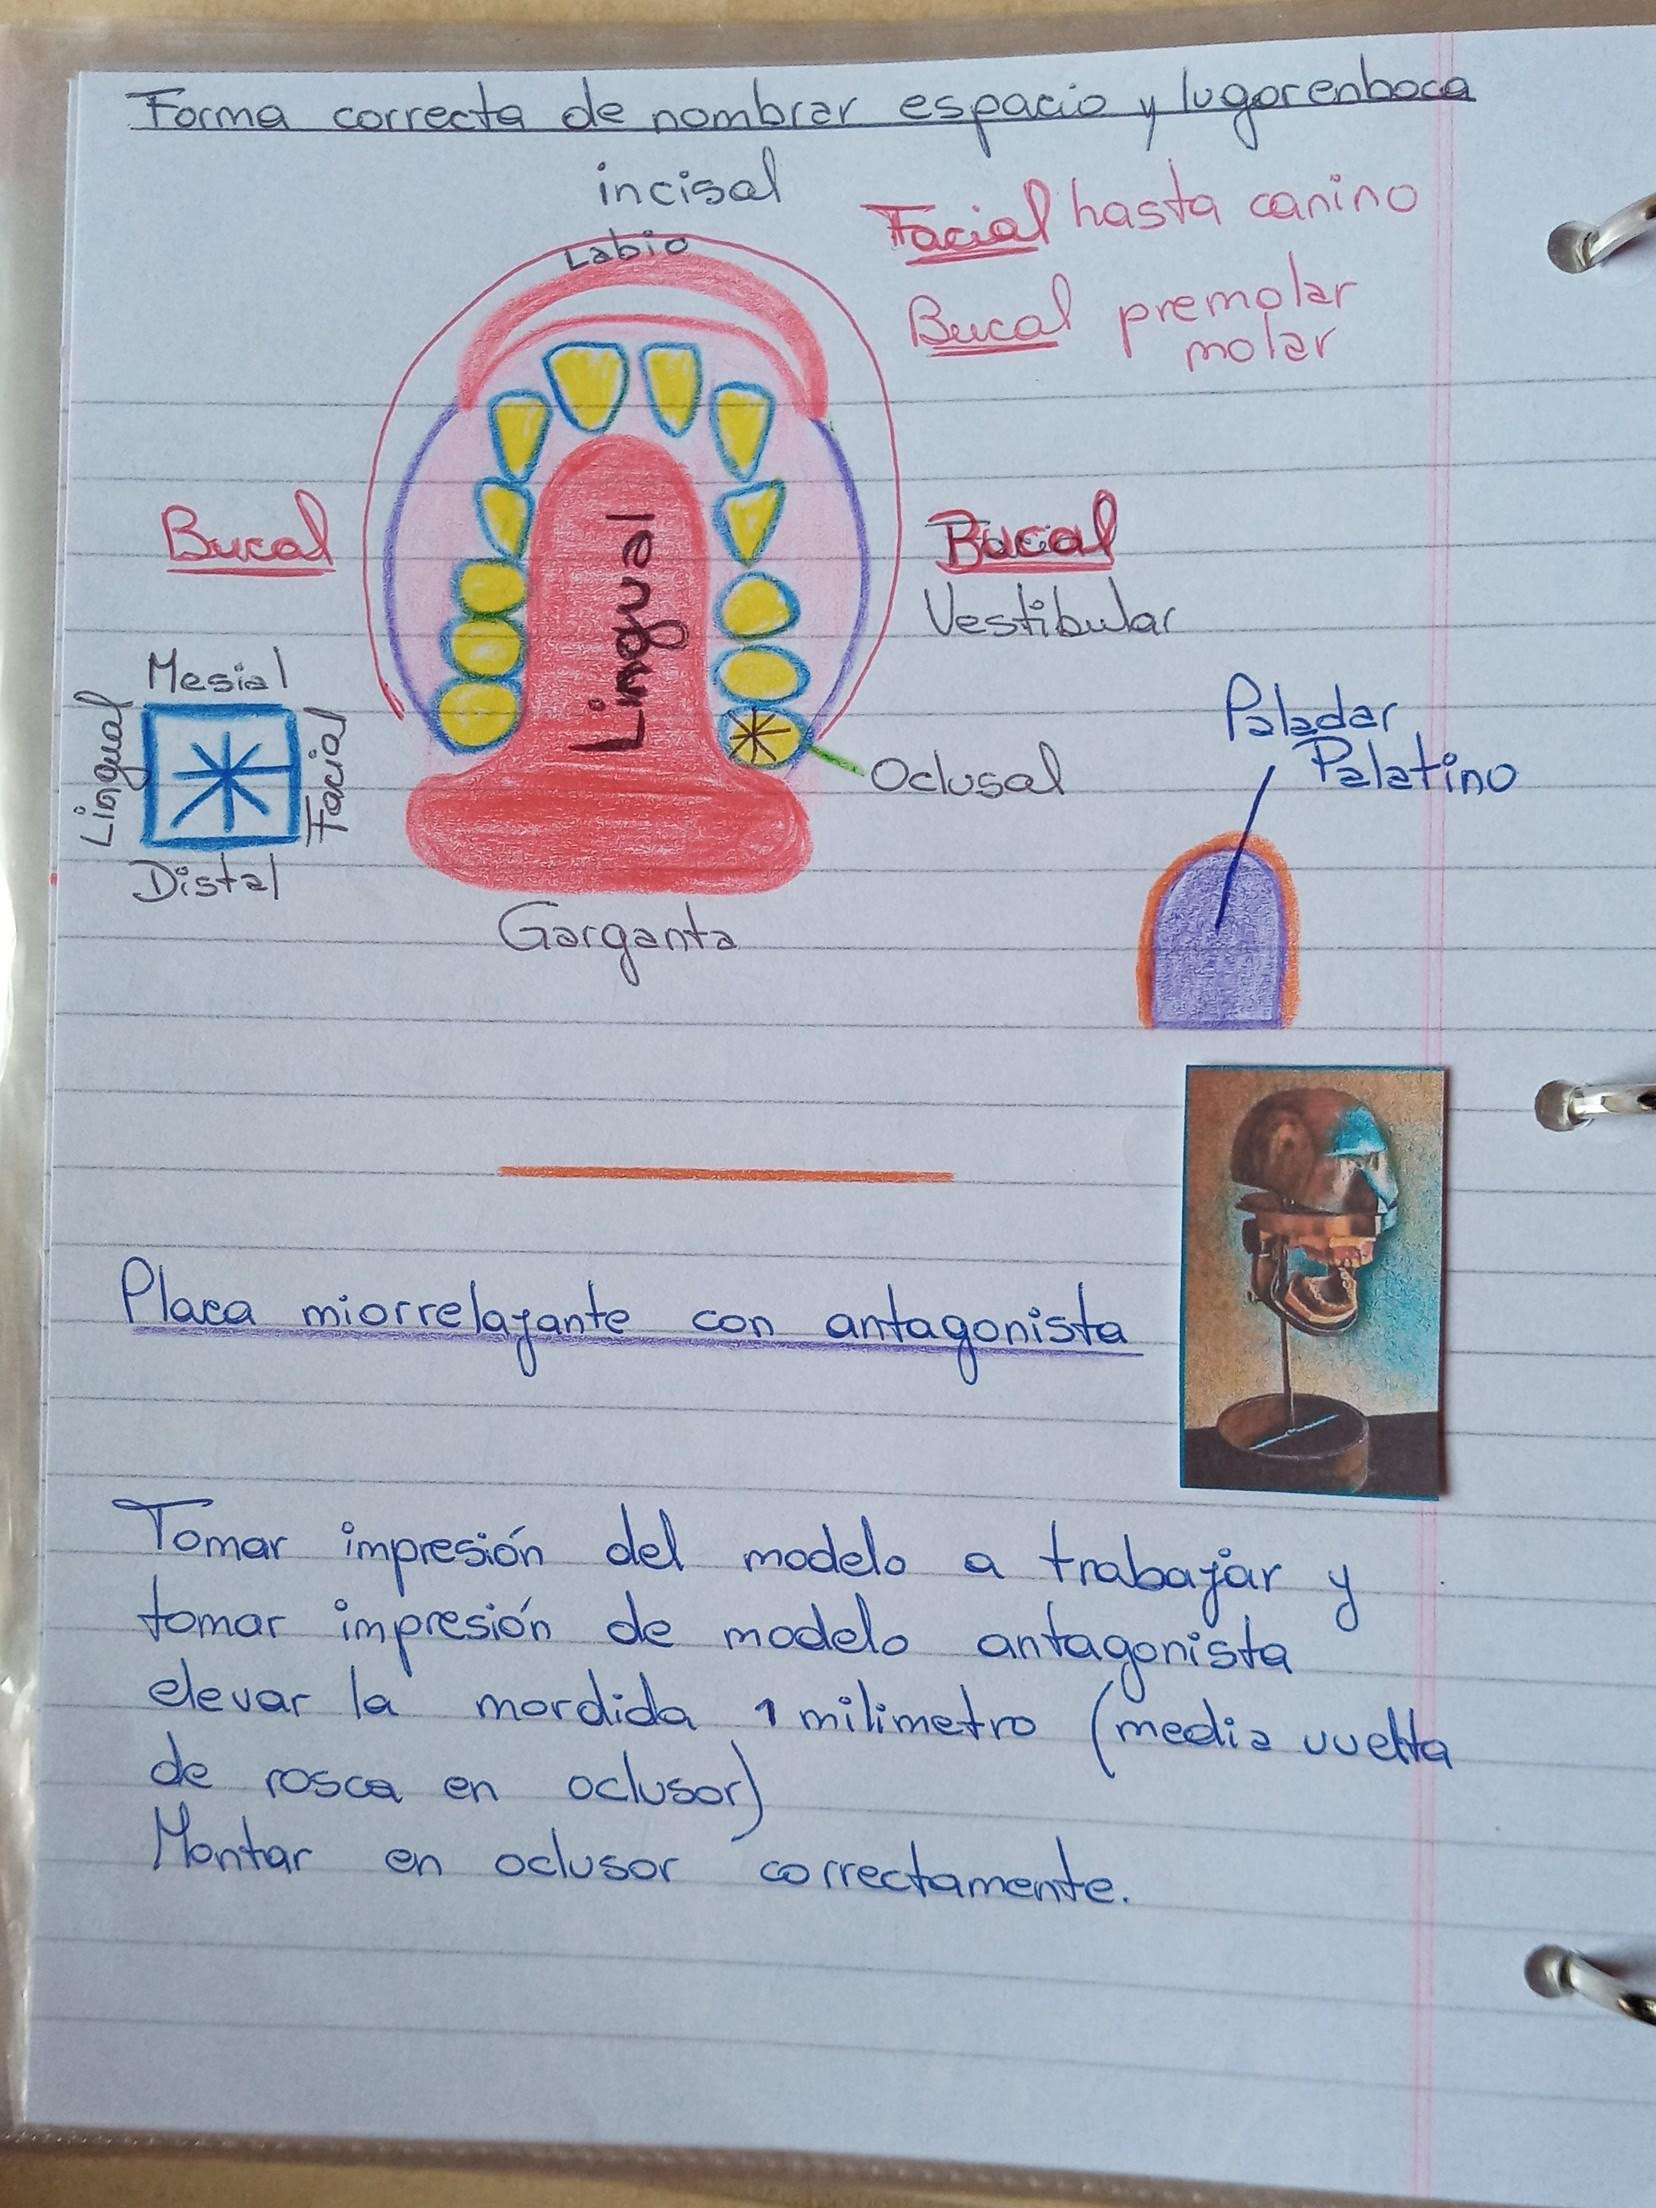 Forma correcta de nombrar espacio y lugar en boca
incisal
Labio
Facial hasta canino
Bucal premolar
molar
Bucal
Lingual
Bucal
Vestibular
Mesial
Lingual
Facial
Distal
Oclusal
Paladar
Palatino
Garganta
Placa miorrelajante con antagonista
Tomar impresión del modelo a trabajar y
tomar impresión de modelo antagonista
elevar la mordida 1 milimetro (media vuelta
de rosca en oclusor)
Montar en oclusor correctamente.